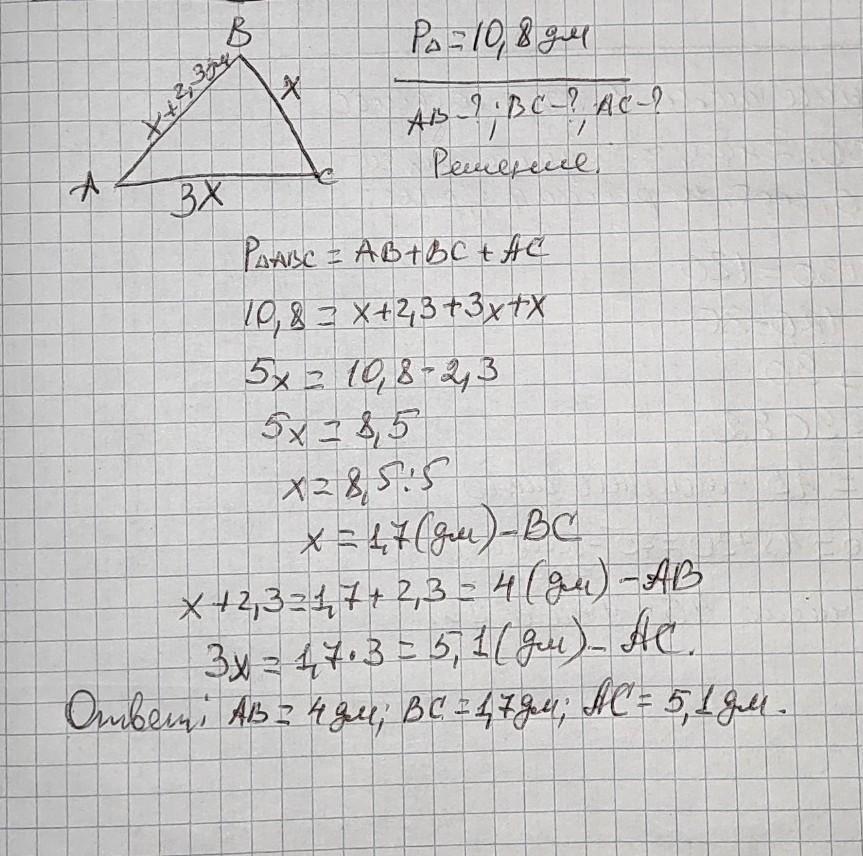 B
P△=10,8 дм
x+2,3дм
x
AB-?; BC-?, AC-?
Решение.
A
C
3x
P△ABC = AB+BC+AC
10,8 = x+2,3+3x+x
5x = 10,8-2,3
5x = 8,5
x = 8,5:5
x = 1,7(дм)-BC
x+2,3=1,7+2,3=4(дм)-AB
3x=1,7·3=5,1(дм)- AC.
Ответ: AB=4дм; BC=1,7дм; AC=5,1дм.